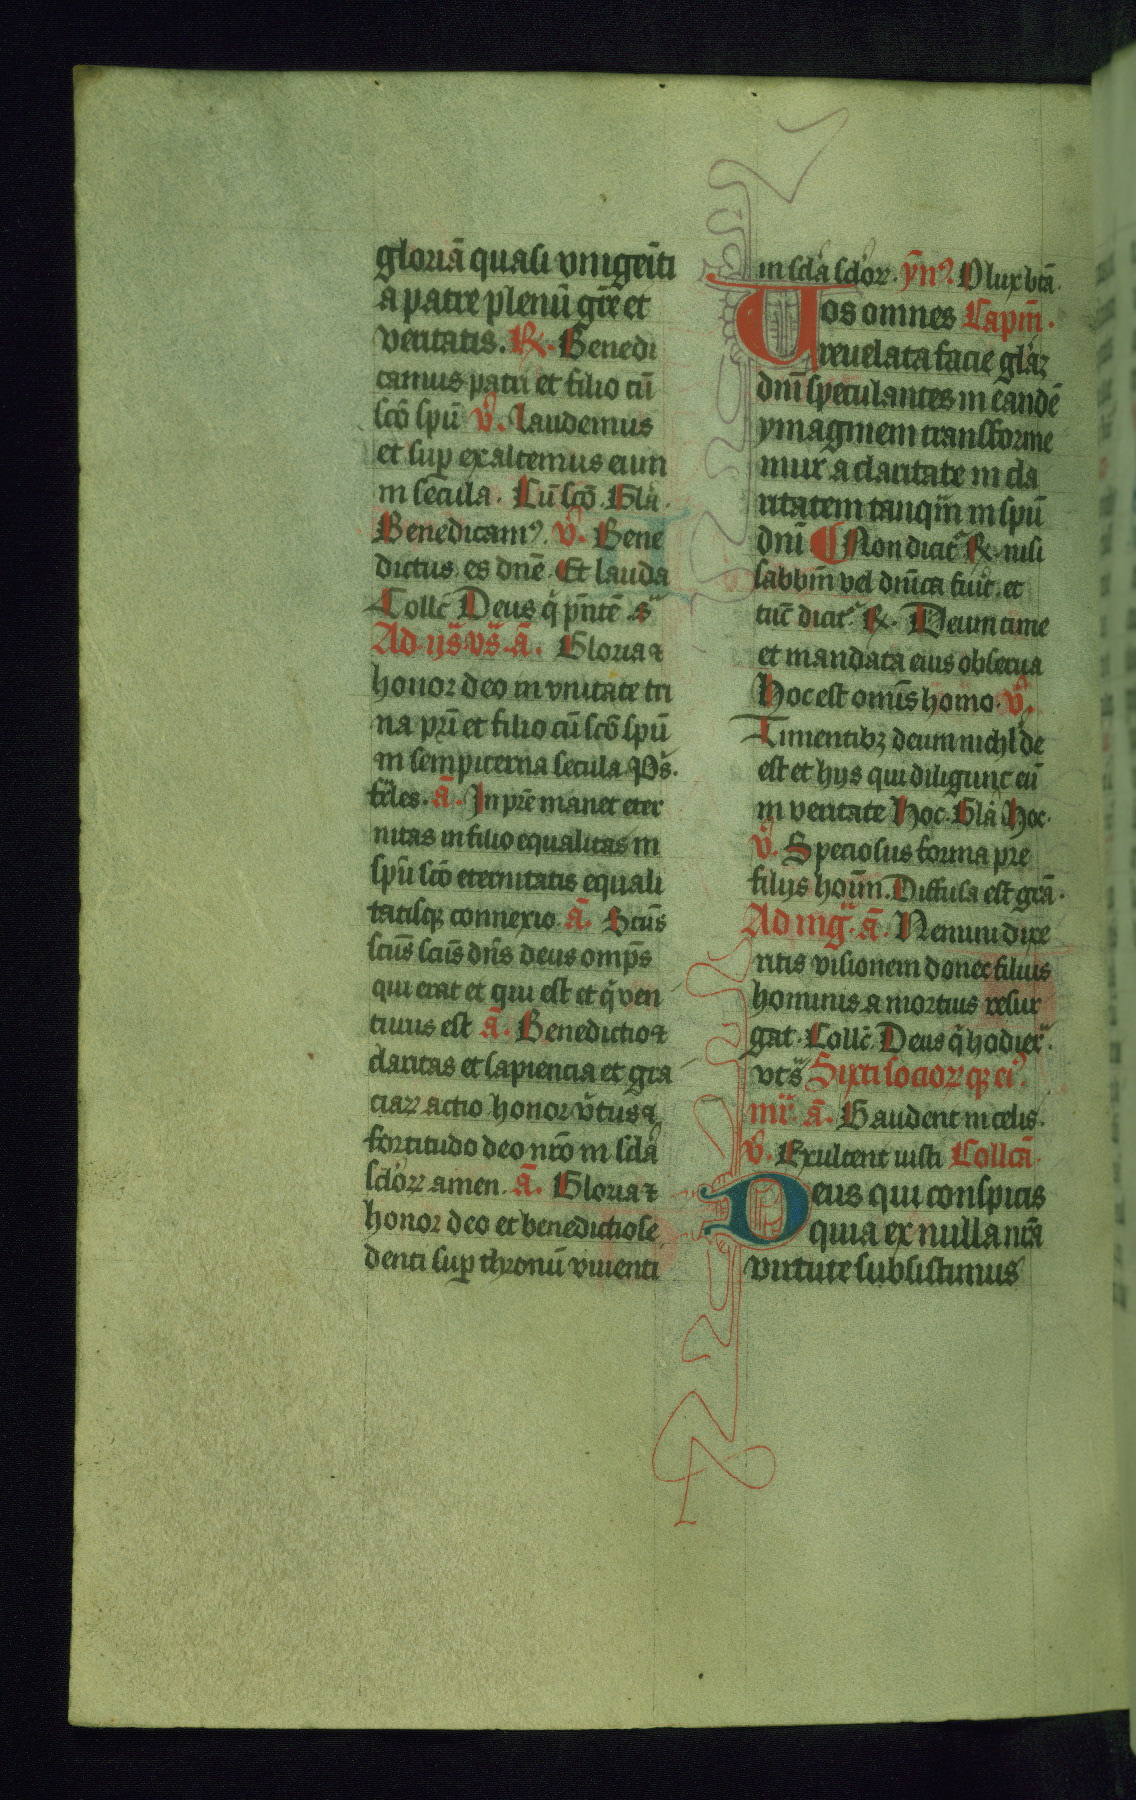 gloriā quasi vnigeīti
a patre plenū gr̄e et
veritatis. R̸. Benedi
camus patri et filio cū
sc̄o spū v̄. Laudemus
et sup exaltemus eum
in secula. Cū sc̄o. Gl̄a.
Benedicam⁹. v̄. Bene
dictus es dn̄e. Et lauda
Collc̄ Deus q̄ pn̄tē s
Ad ijs vs̄ ā. Gloria ⁊
honor deo in vnitate tri
na pr̄i et filio cū sc̄o spū
in sempiterna secula Ps̄.
fēles. ā. In pr̄e manet eter
nitas in filio equalitas in
spū sc̄o eternitatis equali
tatisq̨ connexio. ā. Sc̄us
sc̄us sc̄us dn̄s deus omp̄s
qui erat et qui est et q̄ ven
turus est ā. Benedictio ⁊
claritas et sapiencia et gra
ciaꝝ actio honor v̄tus ⁊
fortitudo deo nr̄o in scl̄a
scl̄oꝝ amen. ā. Gloria ⁊
honor deo et benedictio se
denti sup thronū viuenti
in scl̄a scl̄oꝝ. ȳn⁹. O lux btā.
Uos omnes Capīn.
reuelata facie gl̄aꝫ
dn̄i speculantes in eandē
ymaginem transforme
mur a claritate in cla
ritatem tanq̄m in spū
dn̄i Non dicit̄ R̸. nisi
sabbīn vel dn̄ica fuīt. et
tūc dicit̄ R̸. Deum time
et mandata eius obserua
hoc est omīs homo. v̄.
Timentibꝫ deum nichl̄ de
est et hijs qui diligunt eū
in veritate Hoc. Gl̄a Hoc.
v̄. Speciosus forma pre
filijs hoīm. Diffusa est grā.
Ad mḡ. ā. Nemini dixe
ritis visionem donec filius
hominis a mortuis resur
gat. Collc̄. Deus q̄ hodier̄.
vts̄ Sixti socioꝝ q̨ ei⁹.
ā. Gaudent in celis.
v̄. Exultent iusti Collcā.
Deus qui conspicis
quia ex nulla nr̄a
virtute subsistimus